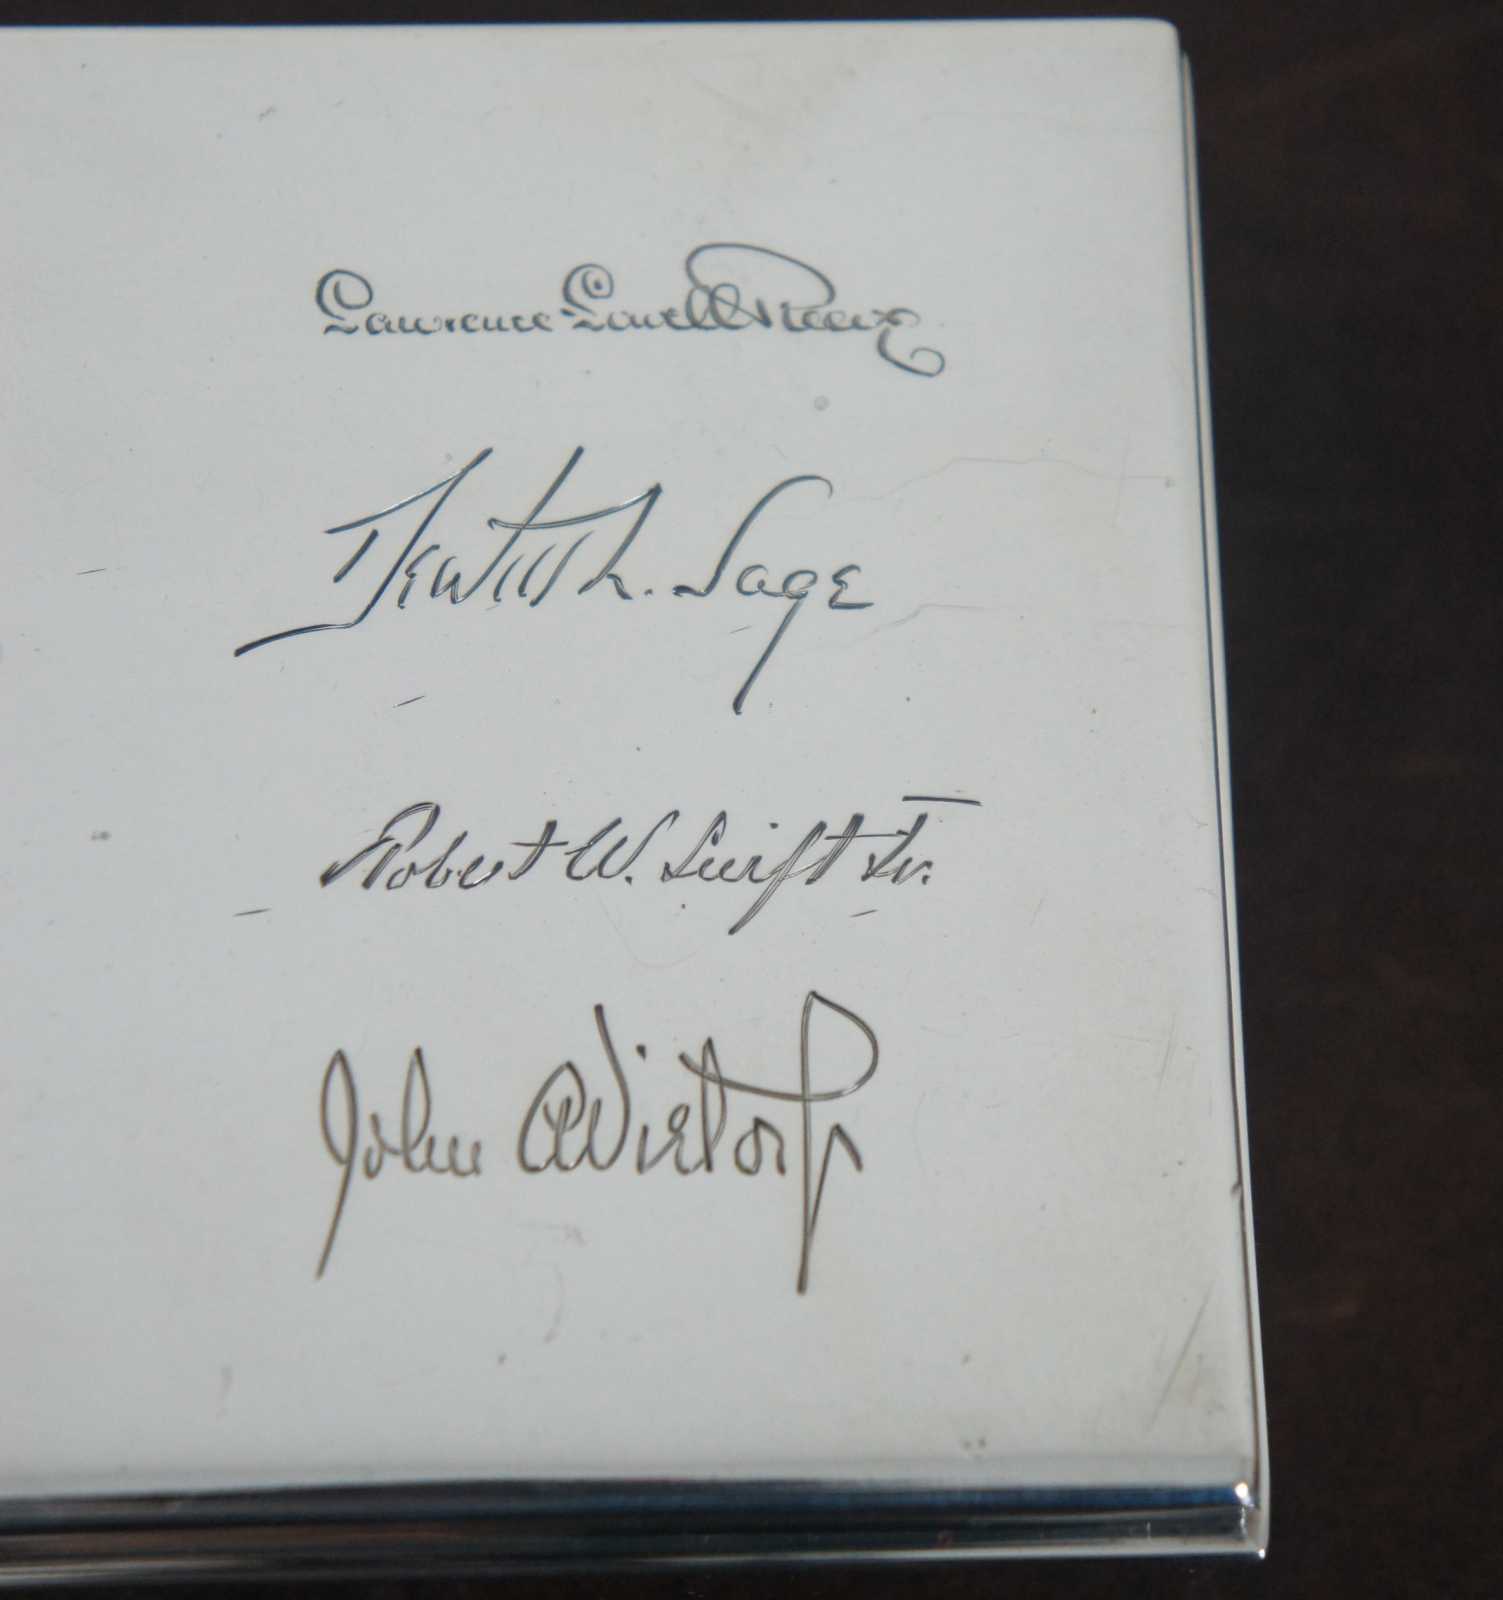 Lawrence Lowell Reeve
Dewitt L. Sage
Robert W. Swift Jr.
John